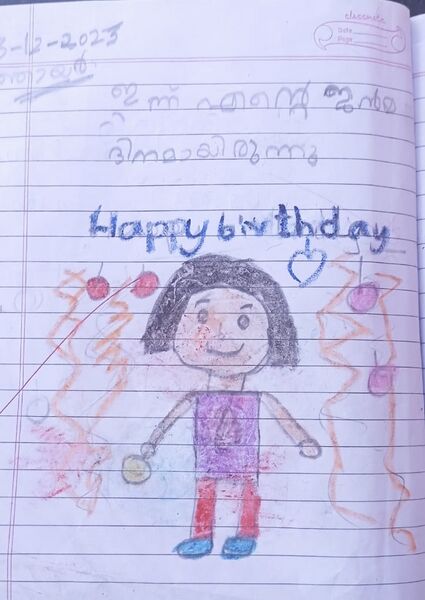 classmate
Date
Page
3-12-2023
ഞായർ
ഇന്ന് എന്റെ ജന്മ
ദിനമായിരുന്നു
Happy birthday